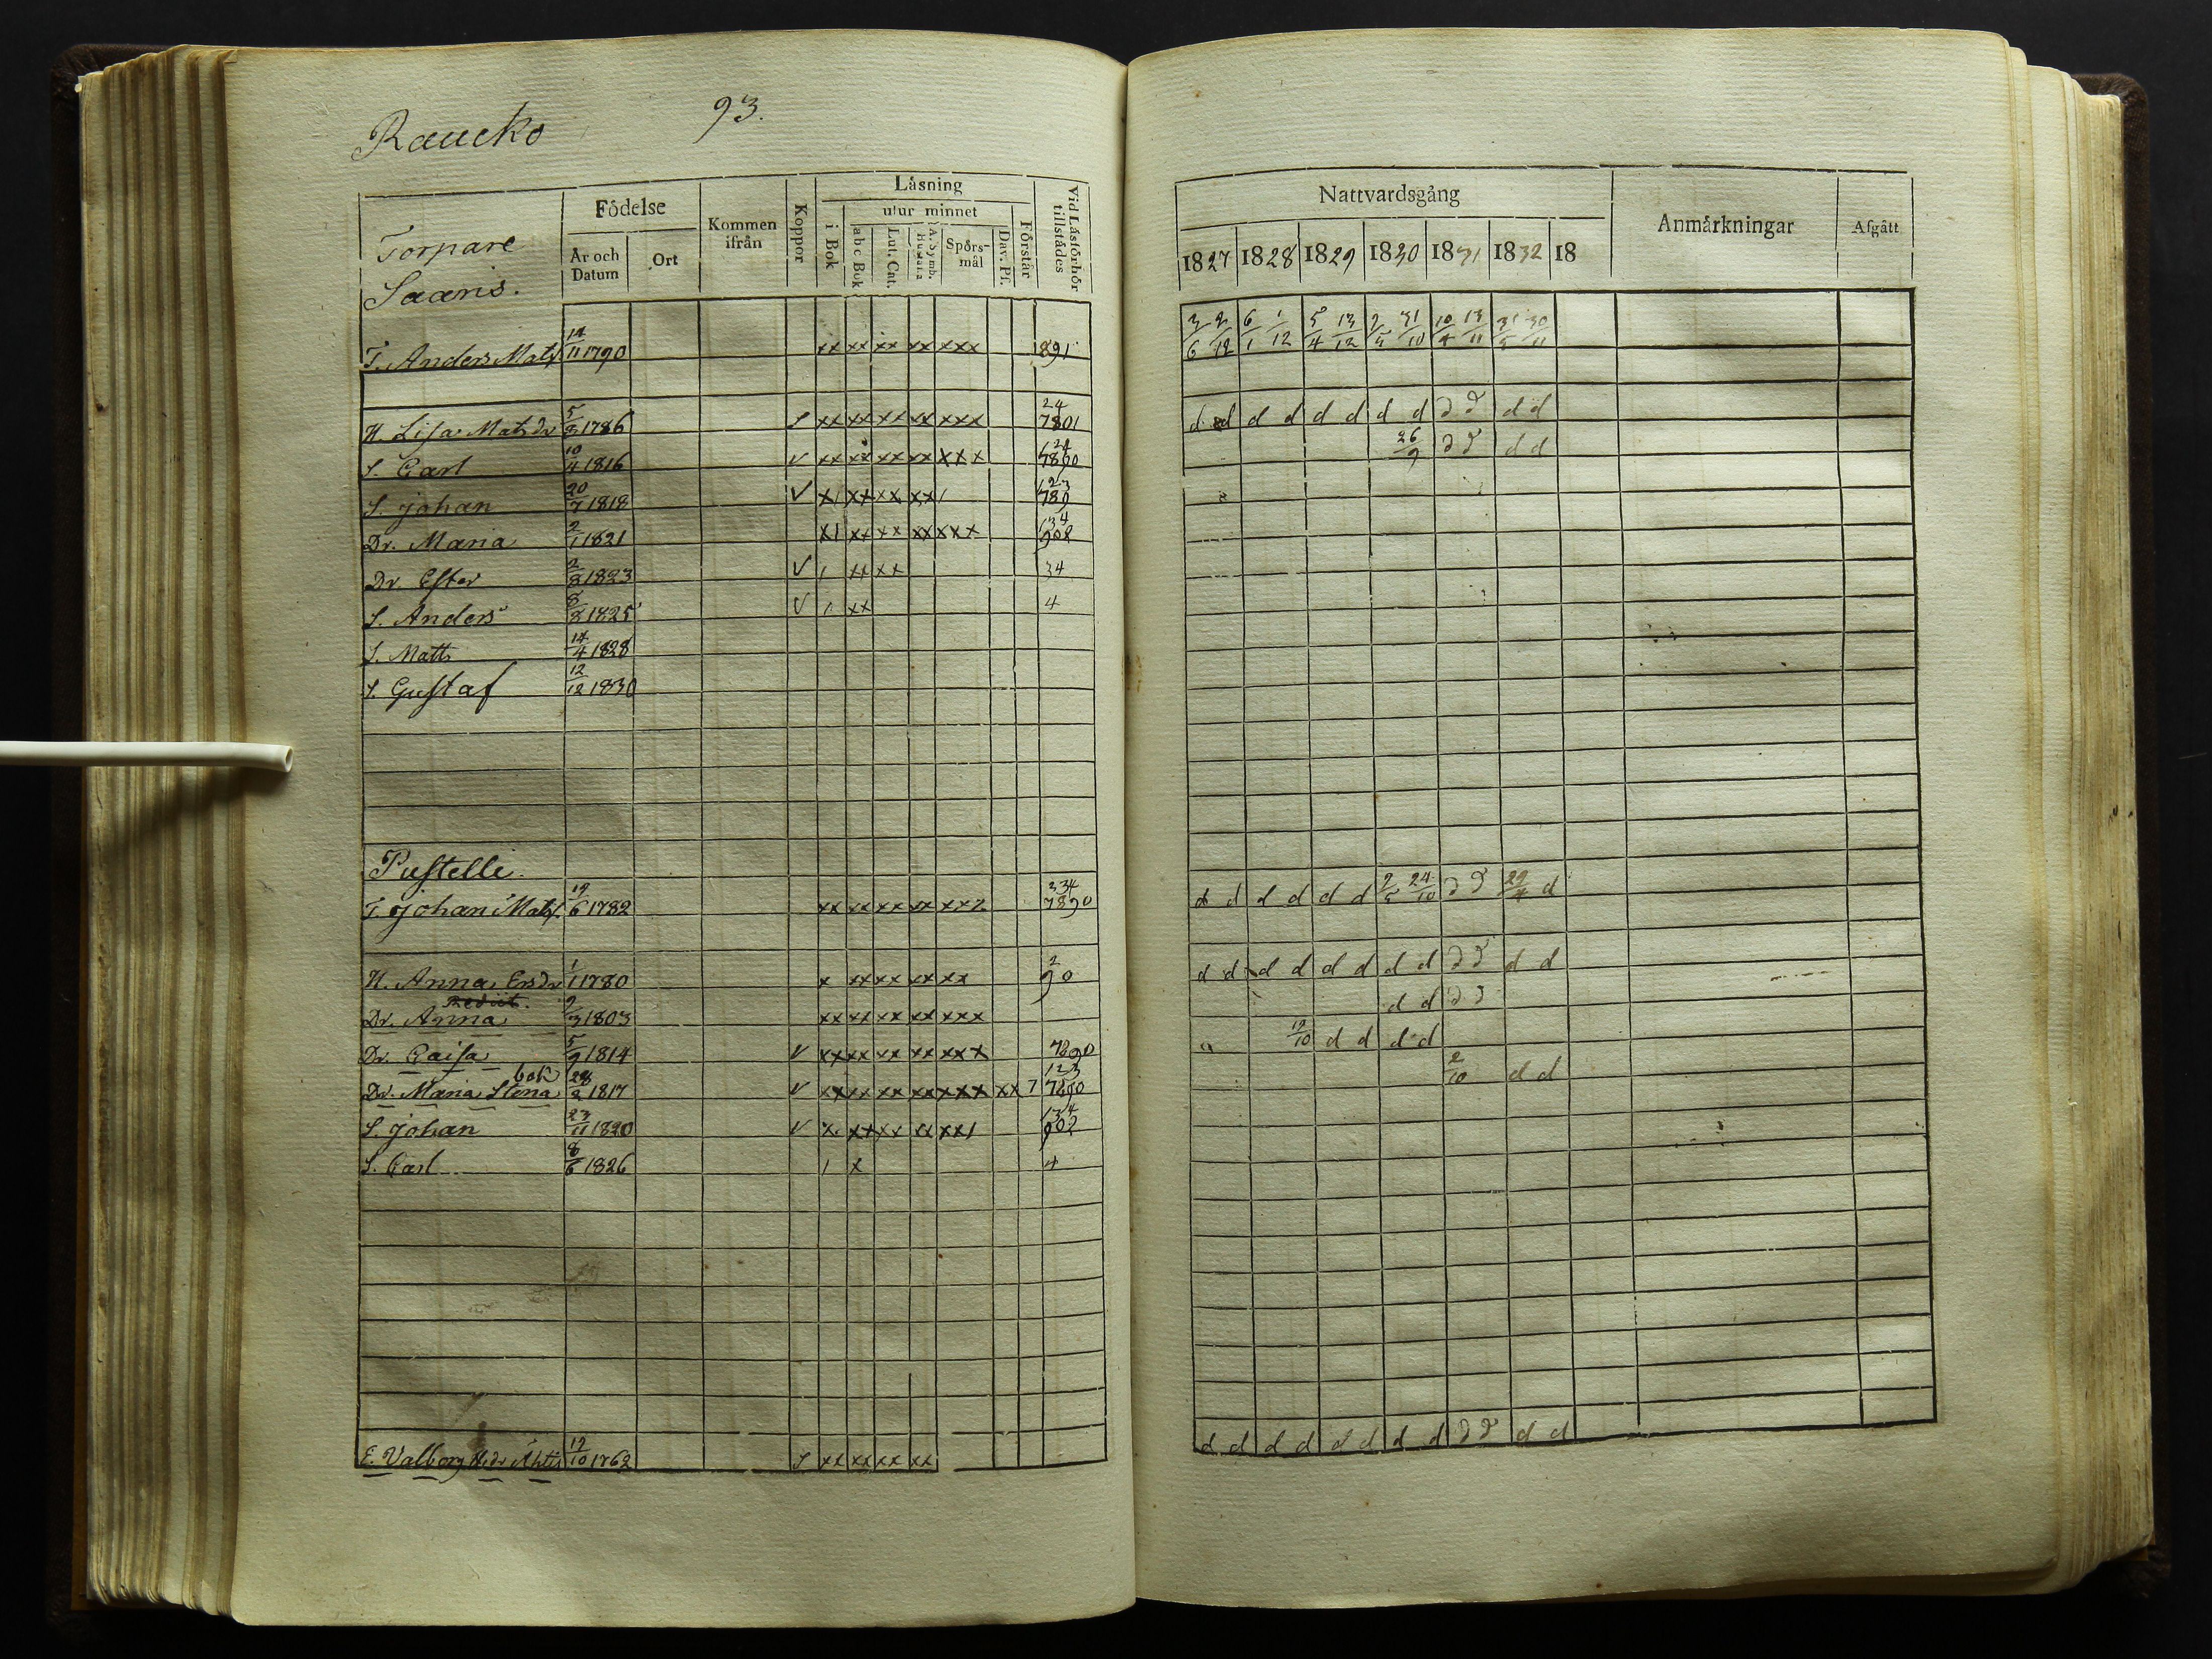 Raucko 93.
Torpare
Saaris.
Födelse
År och Datum
Ort
Kommen ifrån
Koppor
Låsning
i Bok
utur minnet
abc Bok
Lut. Cat.
A. Symb. Hustafla
Spörs-mål
Dav. Pſ.
Förstår
Vid Låsförhör tillstådes
Nattvardsgång
1827 1828 1829 1830 1831 1832 18
Anmårkningar
Afgått
T. Anders Mats 14/11 1790 xx xx xx xx xxx 1891 3/6 2/12 6/1 1/12 5/4 13/12 2/5 31/10 10/4 13/11 31/5 30/11
H. Lisa Matsdr 5/3 1786 S xx xx xx xx xxx 24 7801 d d d d d d d d d d d d
S. Carl 10/4 1816 v xx xx xx xx xxx 26/9 d d d d
S. Johan 20/7 1818 v x/ xx xx xx/ 123 789
Dr. Maria 2/1 1821 x/ xx xx xx xxx 134 902
Dr. Ester 2/3 1823 v / xx xx 34
S. Anders 8/8 1825 v / xx 4
S. Matts 14/4 1828
S. Gustaf 12/12 1830
Pustelli
T. Johan Mats. 19/6 1782 xx xx xx xx xxz 334 7890 d d d d d d 2/5 24/10 d d 29/4 d
H. Anna Ersdr 1/1 1780 x xx xx xx xx 2 90 d d d d d d d d d d d d
Dr. Anna 2/3 1803 xx xx xx xx xxx d d d d
Dr. Caisa 5/9 1814 v xx xx xx xx xxx 7890 19/10 d d d d
bok
Dr. Maria Stena 28/2 1817 v xx xx xx xx xxx xx 7 123 7890 2/10 d d
S. Johan 23/11 1820 v x. xx xx xx xx/ 134 902
S. Carl 8/6 1826 / x 4
E. Valborg 12/10 1762 S xx xx xx xx d d d d d d d d d d d d